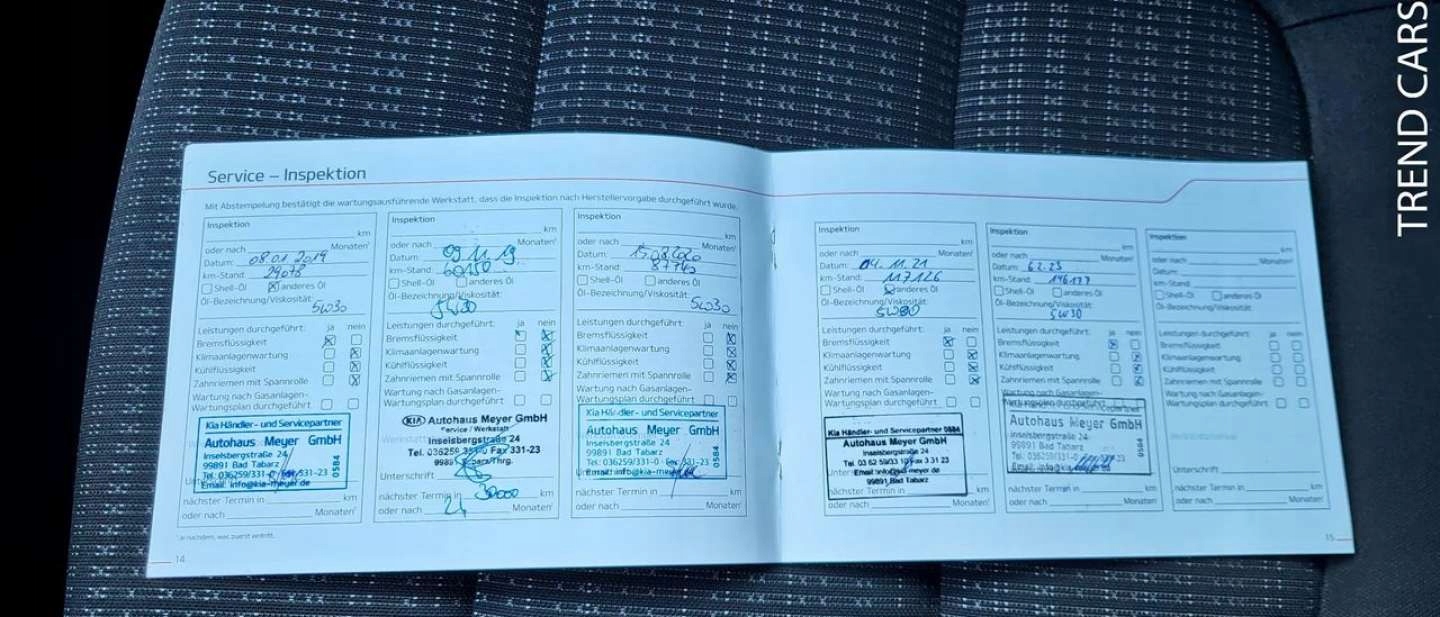 TREND CARS
Service – Inspektion
Mit Abstempelung bestätigt die wartungsausführende Werkstatt, dass die Inspektion nach Herstellervorgabe durchgeführt wurde.
Inspektion
km
oder nach Monaten¹
Datum: 08.01.2019
km-Stand: 29078
Shell-Öl anderes Öl
Öl-Bezeichnung/Viskosität:
5W30
Leistungen durchgeführt: ja nein
Bremsflüssigkeit
Klimaanlagenwartung
Kühlflüssigkeit
Zahnriemen mit Spannrolle
Wartung nach Gasanlagen-
Wartungsplan durchgeführt
Kia Händler- und Servicepartner
Autohaus Meyer GmbH
Inselsbergstraße 24
99891 Bad Tabarz
Tel. 036259/331-0 Fax 331-23
Email: info@kia-meyer.de
0584
nächster Termin in km
oder nach Monaten¹
Inspektion
km
oder nach Monaten¹
Datum: 09.11.19
km-Stand: 60150
Shell-Öl anderes Öl
Öl-Bezeichnung/Viskosität:
5W30
Leistungen durchgeführt: ja nein
Bremsflüssigkeit
Klimaanlagenwartung
Kühlflüssigkeit
Zahnriemen mit Spannrolle
Wartung nach Gasanlagen-
Wartungsplan durchgeführt
KIA Autohaus Meyer GmbH
Service / Werkstatt
Inselsbergstraße 24
Fax 331-23
Unterschrift
nächster Termin in 30000 km
oder nach 24 Monaten¹
Inspektion
km
oder nach Monaten¹
Datum: 15.08.2020
km-Stand:
Shell-Öl anderes Öl
Öl-Bezeichnung/Viskosität:
5W30
Leistungen durchgeführt: ja nein
Bremsflüssigkeit
Klimaanlagenwartung
Kühlflüssigkeit
Zahnriemen mit Spannrolle
Wartung nach Gasanlagen-
Wartungsplan durchgeführt
Kia Händler- und Servicepartner
Autohaus Meyer GmbH
Inselsbergstraße 24
99891 Bad Tabarz
Tel. 036259/331-0 Fax 331-23
Email: info@kia-meyer.de
0584
nächster Termin in km
oder nach Monaten¹
¹Je nachdem, was zuerst eintritt.
14
Inspektion
km
oder nach Monaten¹
Datum: 04.11.21
km-Stand: 117126
Shell-Öl anderes Öl
Öl-Bezeichnung/Viskosität:
5W30
Leistungen durchgeführt: ja nein
Bremsflüssigkeit
Klimaanlagenwartung
Kühlflüssigkeit
Zahnriemen mit Spannrolle
Wartung nach Gasanlagen-
Wartungsplan durchgeführt
Kia Händler- und Servicepartner 0584
Autohaus Meyer GmbH
Inselsbergstraße 24
99891 Bad Tabarz
nächster Termin in km
oder nach Monaten¹
Inspektion
km
oder nach Monaten¹
Datum: 6.2.23
km-Stand:
Shell-Öl anderes Öl
Öl-Bezeichnung/Viskosität:
5W30
Leistungen durchgeführt: ja nein
Bremsflüssigkeit
Klimaanlagenwartung
Kühlflüssigkeit
Zahnriemen mit Spannrolle
Wartung nach Gasanlagen-
Autohaus Meyer GmbH
Inselsbergstraße 24
99891 Bad Tabarz
0584
nächster Termin in km
oder nach Monaten¹
Inspektion
km
oder nach Monaten¹
Datum:
km-Stand:
Shell-Öl anderes Öl
Öl-Bezeichnung/Viskosität:
Leistungen durchgeführt: ja nein
Bremsflüssigkeit
Klimaanlagenwartung
Kühlflüssigkeit
Zahnriemen mit Spannrolle
Wartung nach Gasanlagen-
Wartungsplan durchgeführt
Unterschrift
nächster Termin in km
oder nach Monaten¹
15